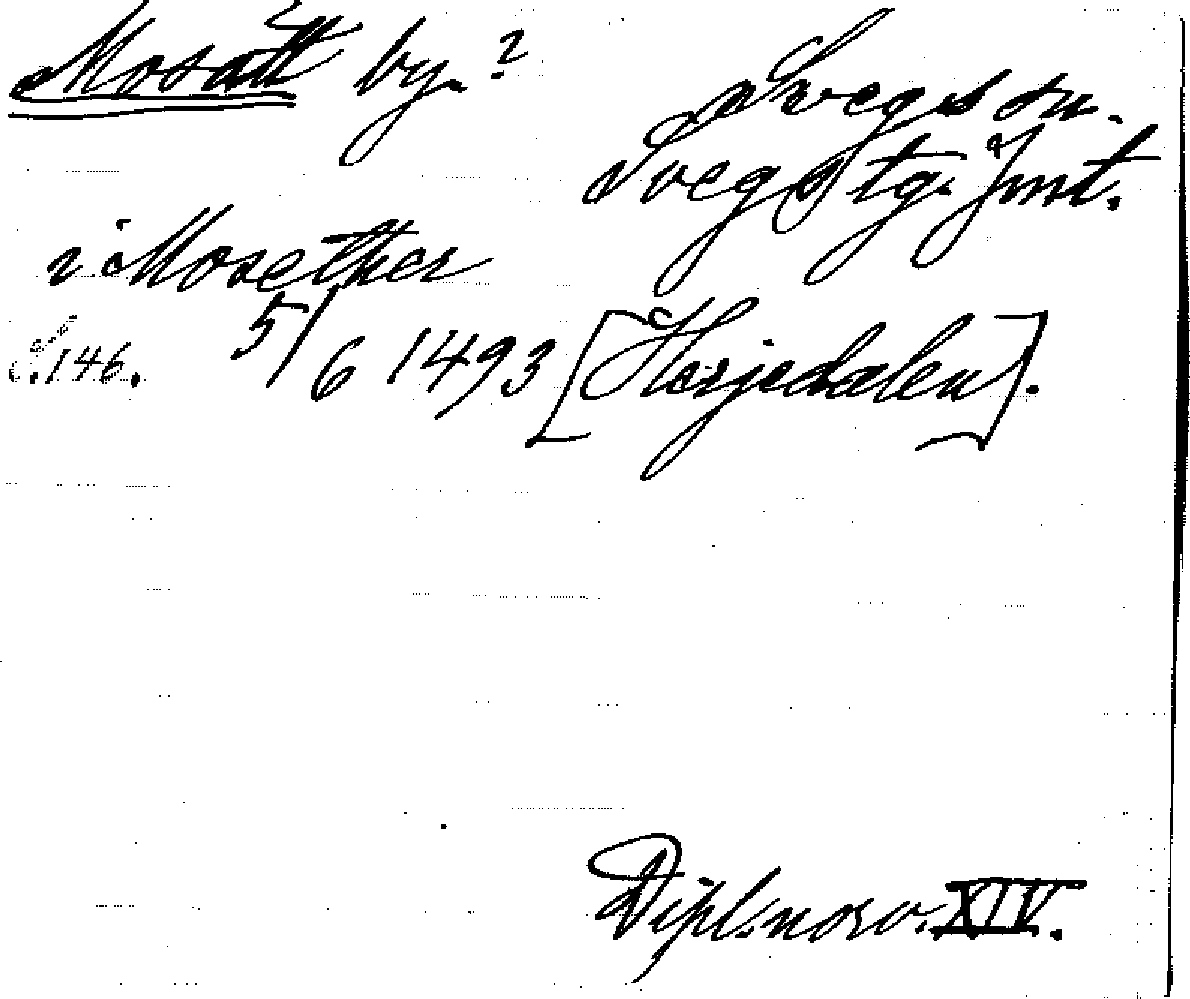 Mosätt by.?
Svegs sn.
Svegs tg. Jmt.
i Mosether
S.146. 5/6 1493 [Herjedalen].
Dipl. norv. XIV.